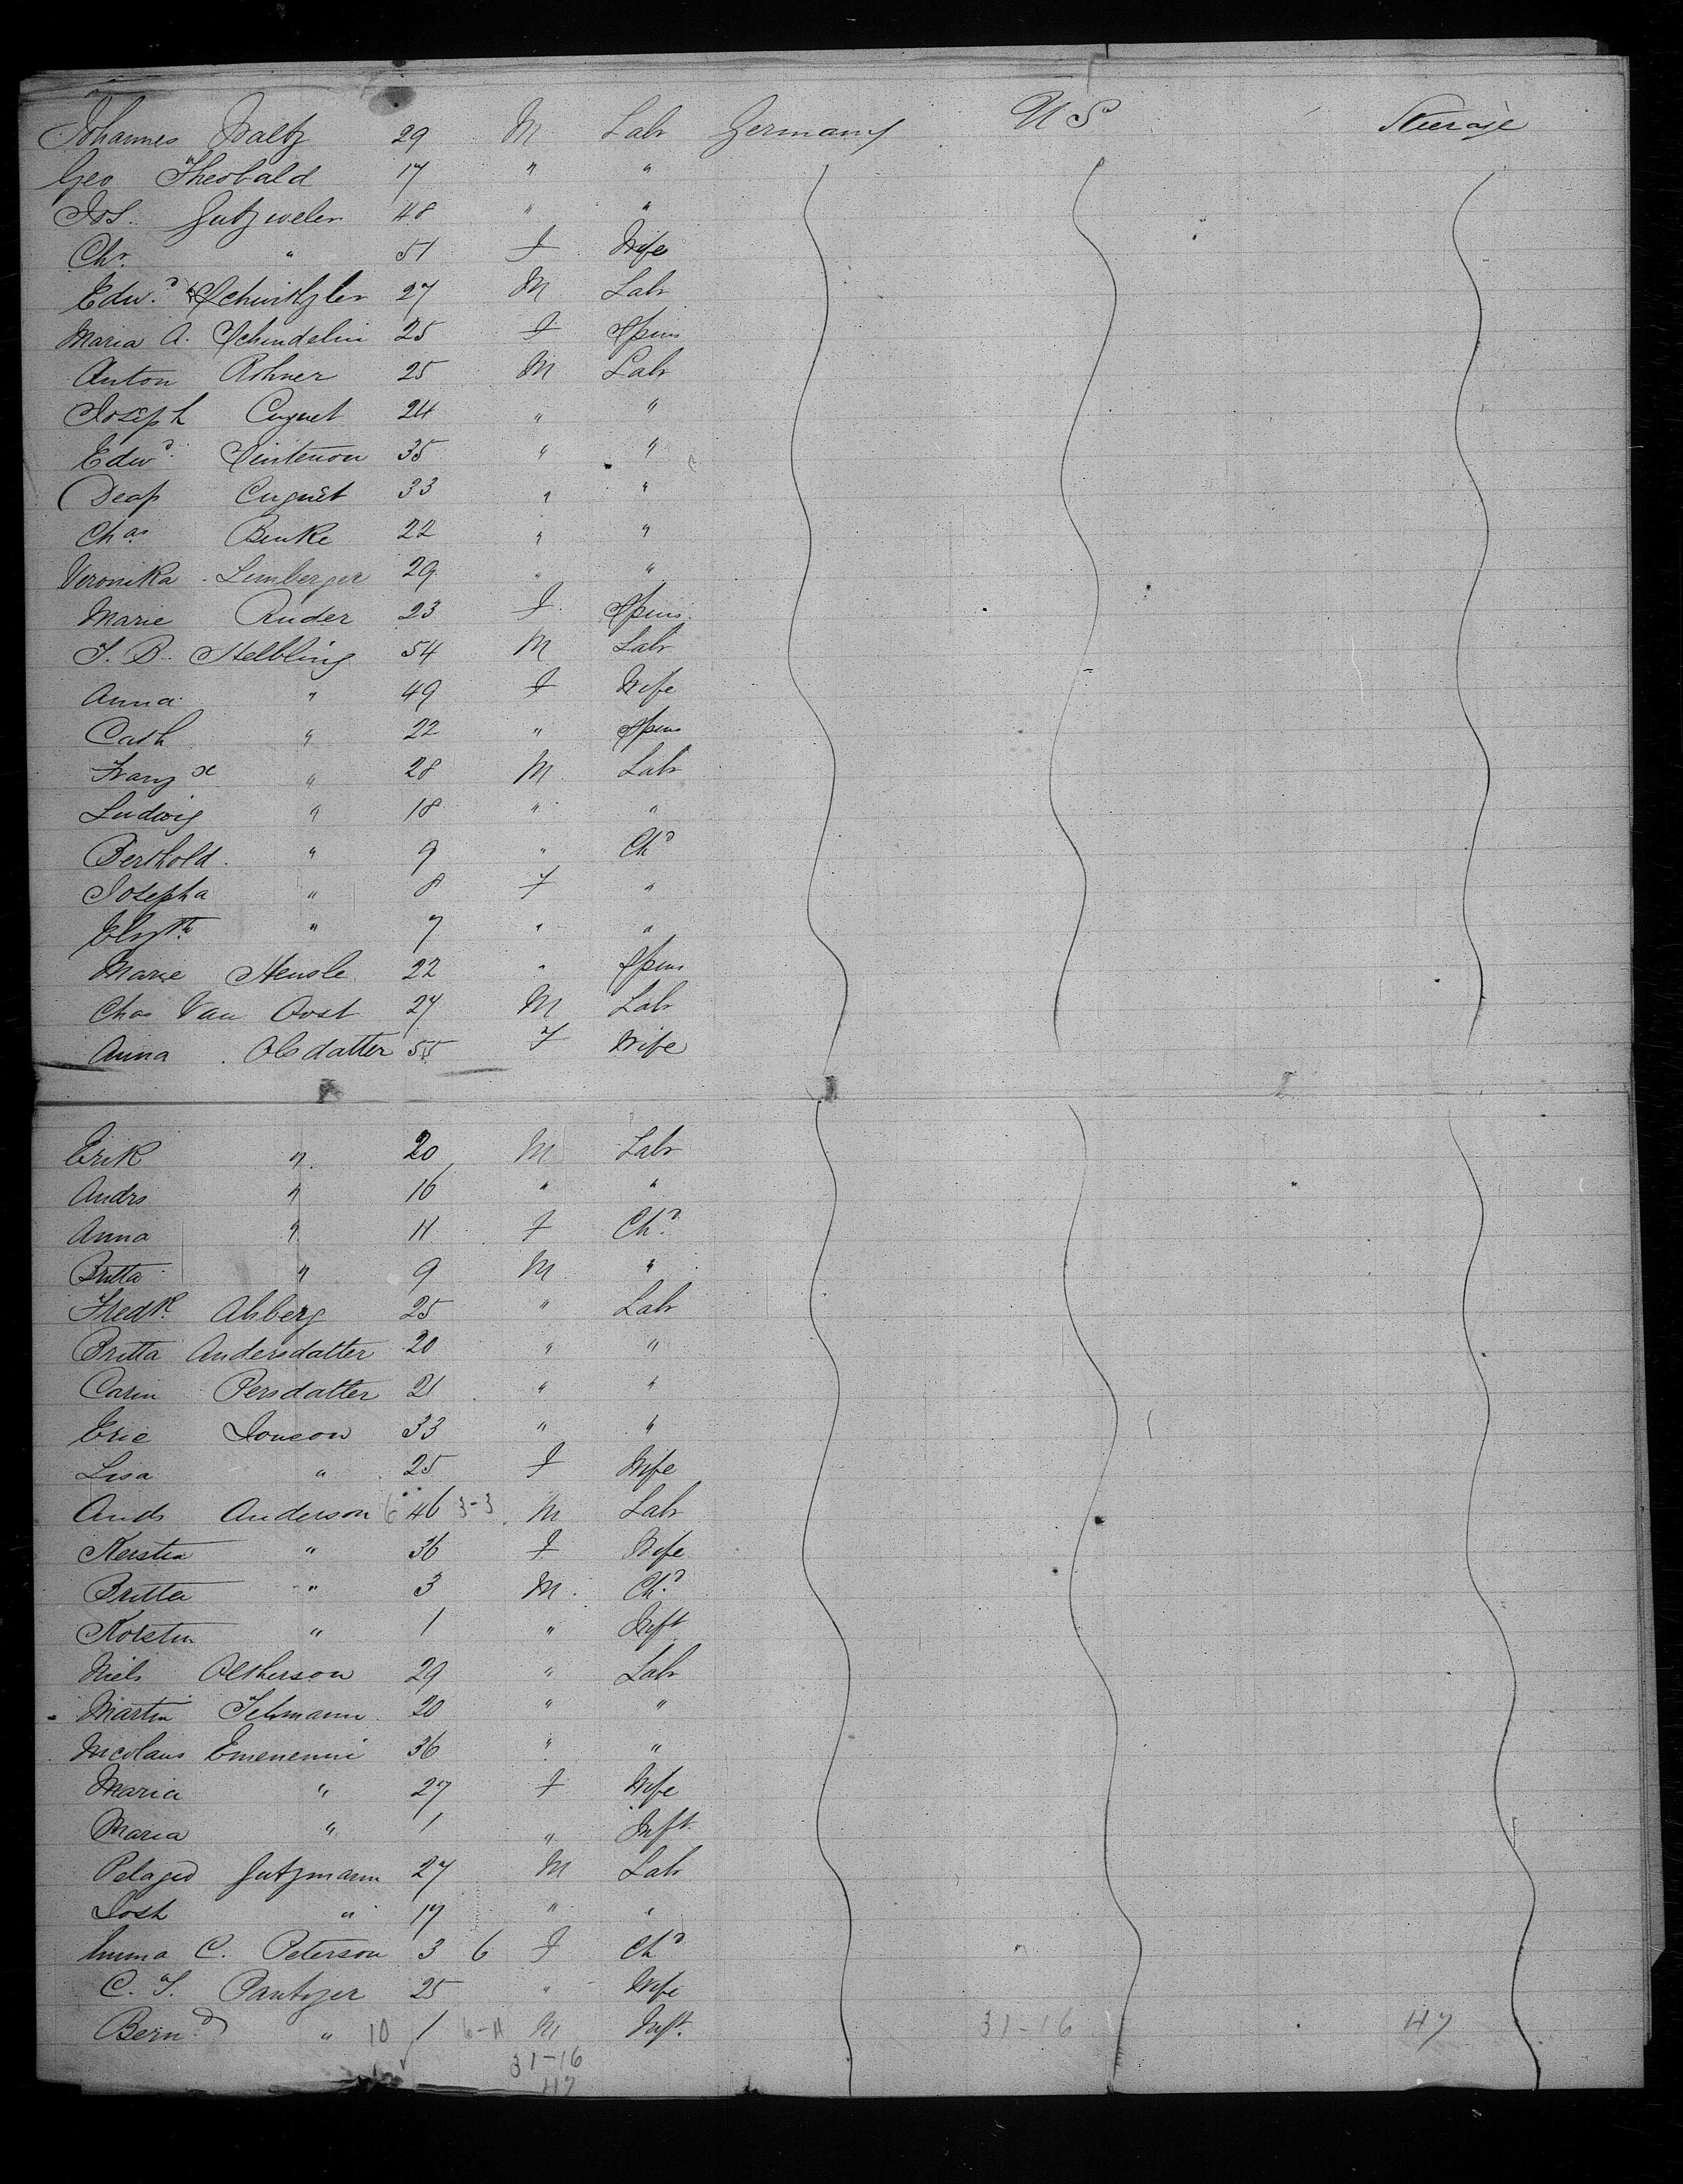 Johannes Waltz 29 M Labr Germany US Steerage
Geo Theobald 17 " "
Jos. Gutzweler 48 " "
Chr. " 51 F Wife
Edwd 27 M Labr
Maria A. Schindelin 25 F Spins
Anton Rohner 25 M Labr
Joseph Cugnet 24 " "
Edwd 35 " "
Cugnet 33 " "
Chas Benke 22 " "
Veronika Limberger 29 " "
Marie Ruder 23 F Spins
J. B. Helbling 54 M Labr
Anna " 49 F Wife
Cath " 22 " Spins
Franz X " 28 M Labr
Ludwig " 18 " "
Berthold " 9 " Chd
Josepha " 8 F "
Elizth " 7 " "
Marie Hensle 22 " Spins
Chas Van Oost 27 M Labr
Anna Olsdatter 55 F Wife
Erik " 20 M Labr
Andrs " 16 " "
Anna " 11 F Chd
Britta " 9 M "
Fredk Ahberg 25 " Labr
Britta Andersdatter 20 " "
Carin Persdatter 21 " "
Eric Jonson 33 " "
Lisa " 25 F Wife
Ands Anderson 6 46 3-3 M Labr
Kerstin " 36 F Wife
Britta " 3 M Chd
Kerstin " 1 " Inft
Niels 29 " Labr
Martin 20 " "
Nicolaus 36 " "
Maria " 27 F Wife
Maria " 1 " Inft
Gutzmann 27 M Labr
Josh " 17 " "
Emma C. Peterson 3 6 F Chd
C. F. Pantzer 25 " Wife
Bernd " 10 1 6-11 M Inft. 31-16 47
31-16
47